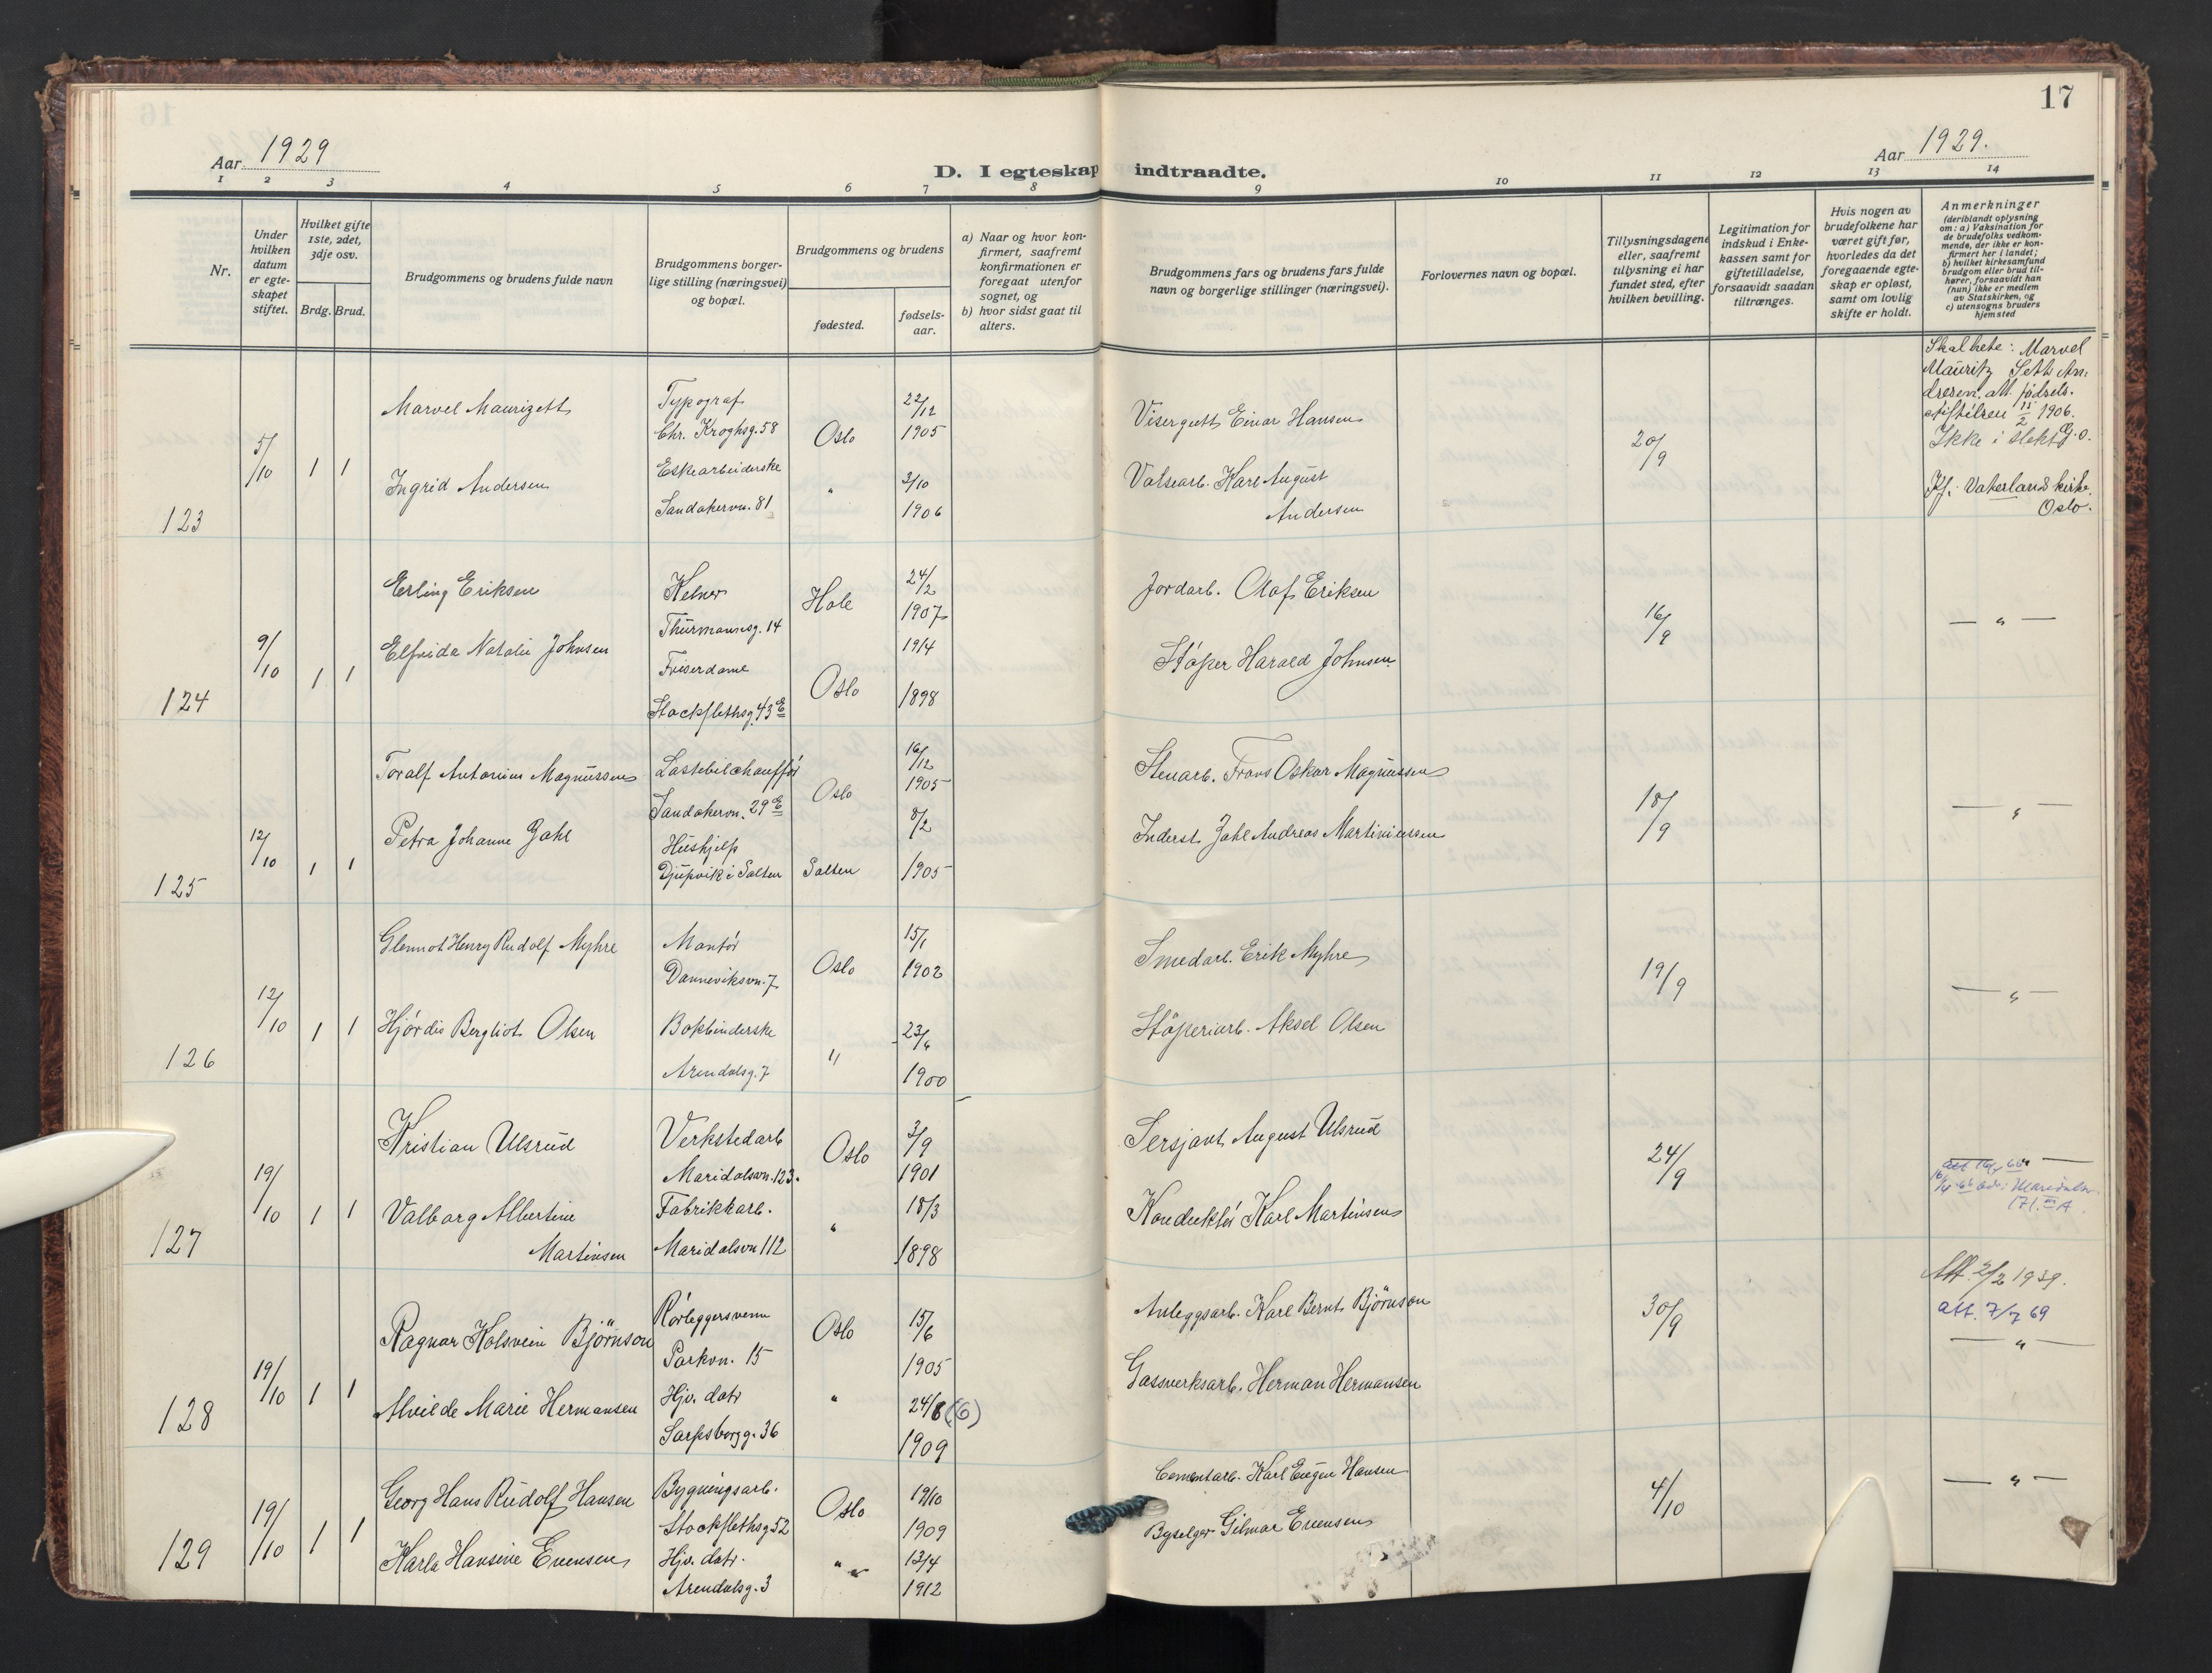 17
Aar 1929
Aar 1929.
D. I egteskap indtraadte.
1 2 3 4 5 6 7 8 9 10 11 12 13 14
Nr.
Under hvilken datum er egteskapet stiftet.
Hvilket gifte 1ste, 2det, 3dje osv.
Brdg. Brud.
Brudgommens og brudens fulde navn
Brudgommens borgerlige stilling (næringsvei) og bopæl.
Brudgommens og brudens
fødested.
fødselsaar.
a) Naar og hvor konfirmert, saafremt konfirmationen er foregaat utenfor sognet, og
b) hvor sidst gaat til alters.
Brudgommens fars og brudens fars fulde navn og borgerlige stillinger (næringsvei).
Forlovernes navn og bopæl.
Tillysningsdagene eller, saafremt tillysning ei har fundet sted, efter hvilken bevilling.
Legitimation for indskud i Enkekassen samt for giftetilladelse, forsaavidt saadan tiltrænges.
Hvis nogen av brudefolkene har været gift før, hvorledes da det foregaaende egteskap er opløst, samt om lovlig skifte er holdt.
Anmerkninger
(deriblandt oplysning om: a) Vaksination for de brudefolks vedkommende, der ikke er konfirmert her i landet;
b) hvilket kirkesamfund brudgom eller brud tilhører, forsaavidt han (hun) ikke er medlem av Statskirken, og
c) utensogns bruders hjemsted
123
5/10 1 1
Marvel Maurizett
Typograf
Chr. Kroghsg. 58
Oslo
22/12
1905
Visergutt Einar Hansen
20/9
Skal hete: Marvel
Mauritz Seth An-
dresen. att. fødsels-
stiftelsen 15/2 1906.
Ikke i slekt
Ingrid Andersen
Eskearbeiderske
Sandakervn. 81
"
3/10
1906
Valsearb. Karl August
Andersen
Kf. Vaterland kirke.
Oslo.
124
9/10 1 1
Erling Eriksen
Kelner
Thurmannsg. 14
Hole
24/2
1907
Jordarb. Olaf Eriksen
16/9
— " —
Elfrida Natalie Johnsen
Friserdame
Stockflethsg. 43 E
Oslo
19/4
1898
Støper Harald Johnsen
125
12/10 1 1
Toralf Antonius Magnussen
Lastebilchauffør
Sandakervn. 29 E
Oslo
16/12
1905
Stenarb. Frans Oskar Magnussen
18/9
— " —
Petra Johanne Dahl
Hushjelp
Djupvik i Salten
Salten
8/2
1905
Inderst Johl Andreas Martiniussen
126
12/10 1 1
Glennot Henry Rudolf Myhre
Montør
Danneviksvn. 7
Oslo
15/1
1902
Smedarb. Erik Myhre
19/9
— " —
Hjørdis Bergliot Olsen
Bokbinderske
Arendalsg. 7
"
23/6
1900
Støperiarb. Aksel Olsen
127
19/10 1 1
Kristian Ulsrud
Verkstedarb
Maridalsvn. 123.
Oslo
3/9
1901
Sersjant August Ulsrud
24/9
Valborg Albertine
Martinsen
Fabrikkarb.
Maridalsvn 112
"
18/3
1898
Konduktør Karl Martinsen
171. III A.
128
19/10 1 1
Ragnar Kolsvein Björnson
Rørleggersvenn
Parkvn. 15
Oslo
15/6
1905
Anleggsarb. Karl Bernt Björnson
30/9
Att. 2/2 1939.
att. 7/7 69
— " —
Alvilde Marie Hermansen
Hjv. datr
Sarpsborgg. 36
"
24/8 (6)
1909
Gassverksarb. Herman Hermansen
129
19/10 1 1
Georg Hans Rudolf Hansen
Bygningsarb.
Stockflethsg 52
Oslo
19/10
1909
Cementarb. Karl Eugen Hansen
4/10
— " —
Karla Hansine Evensen
Hjv. datr.
Arendalsg. 3
"
13/4
1912
Byselger Gilmar Evensen